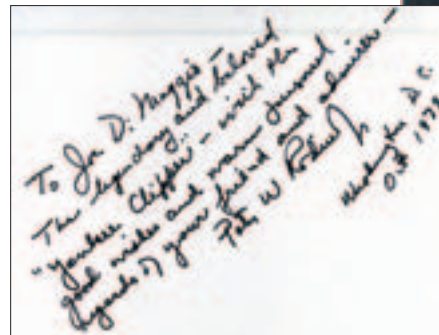 To Joe Di Maggio –
The legendary and beloved
"Yankee Clipper" – with the
good wishes and warm personal
regards of your friend and admirer –
Peter W Rodino Jr
Washington D.C.
Oct 1978